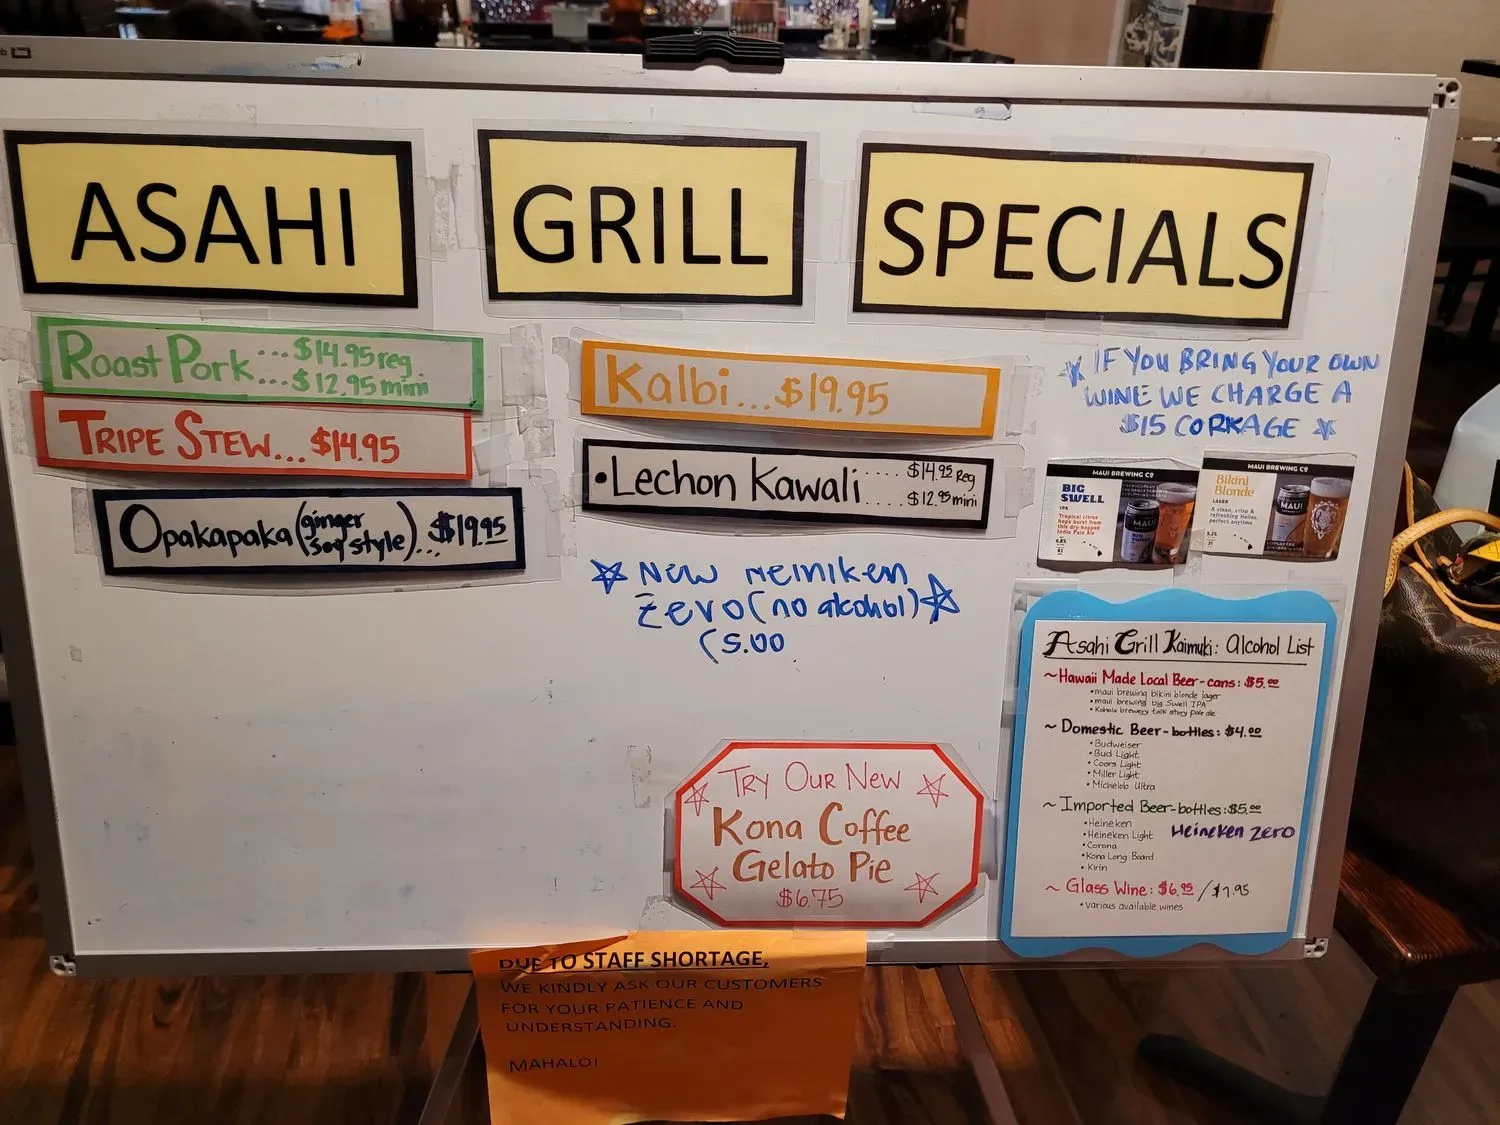 ASAHI GRILL SPECIALS
Roast Pork...$14.95 reg.
...$12.95 mini
TRIPE STEW...$14.95
Opakapaka (ginger soy style)...$19.95
Kalbi...$19.95
•Lechon Kawali....$14.95 Reg
....$12.95 mini
New Heiniken
Zero (no alcohol)
(5.00
IF YOU BRING YOUR OWN
WINE WE CHARGE A
$15 CORKAGE
MAUI BREWING CO
BIG
SWELL
IPA
Tropical citrus
hops burst from
this dry-hopped
India Pale Ale
6.8%
MAUI BREWING CO
Bikini
Blonde
LAGER
A clean, crisp &
refreshing Helles,
perfect anytime
5.2%
MAUI
Asahi Grill Kaimuki: Alcohol List
~Hawaii Made Local Beer-cans: $5.00
•maui brewing bikini blonde lager
•maui brewing big swell IPA
•Kohola brewery talk story pale ale
~ Domestic Beer-bottles: $4.00
•Budweiser
•Bud Light
•Coors Light
•Miller Light
•Michelob Ultra
~ Imported Beer-bottles: $5.00
•Heineken
•Heineken Light Heineken Zero
•Corona
•Kona Long Board
•Kirin
~ Glass Wine: $6.95 / $7.95
•various available wines
TRY OUR NEW
Kona Coffee
Gelato Pie
$6.75
DUE TO STAFF SHORTAGE,
WE KINDLY ASK OUR CUSTOMERS
FOR YOUR PATIENCE AND
UNDERSTANDING.
MAHALO!